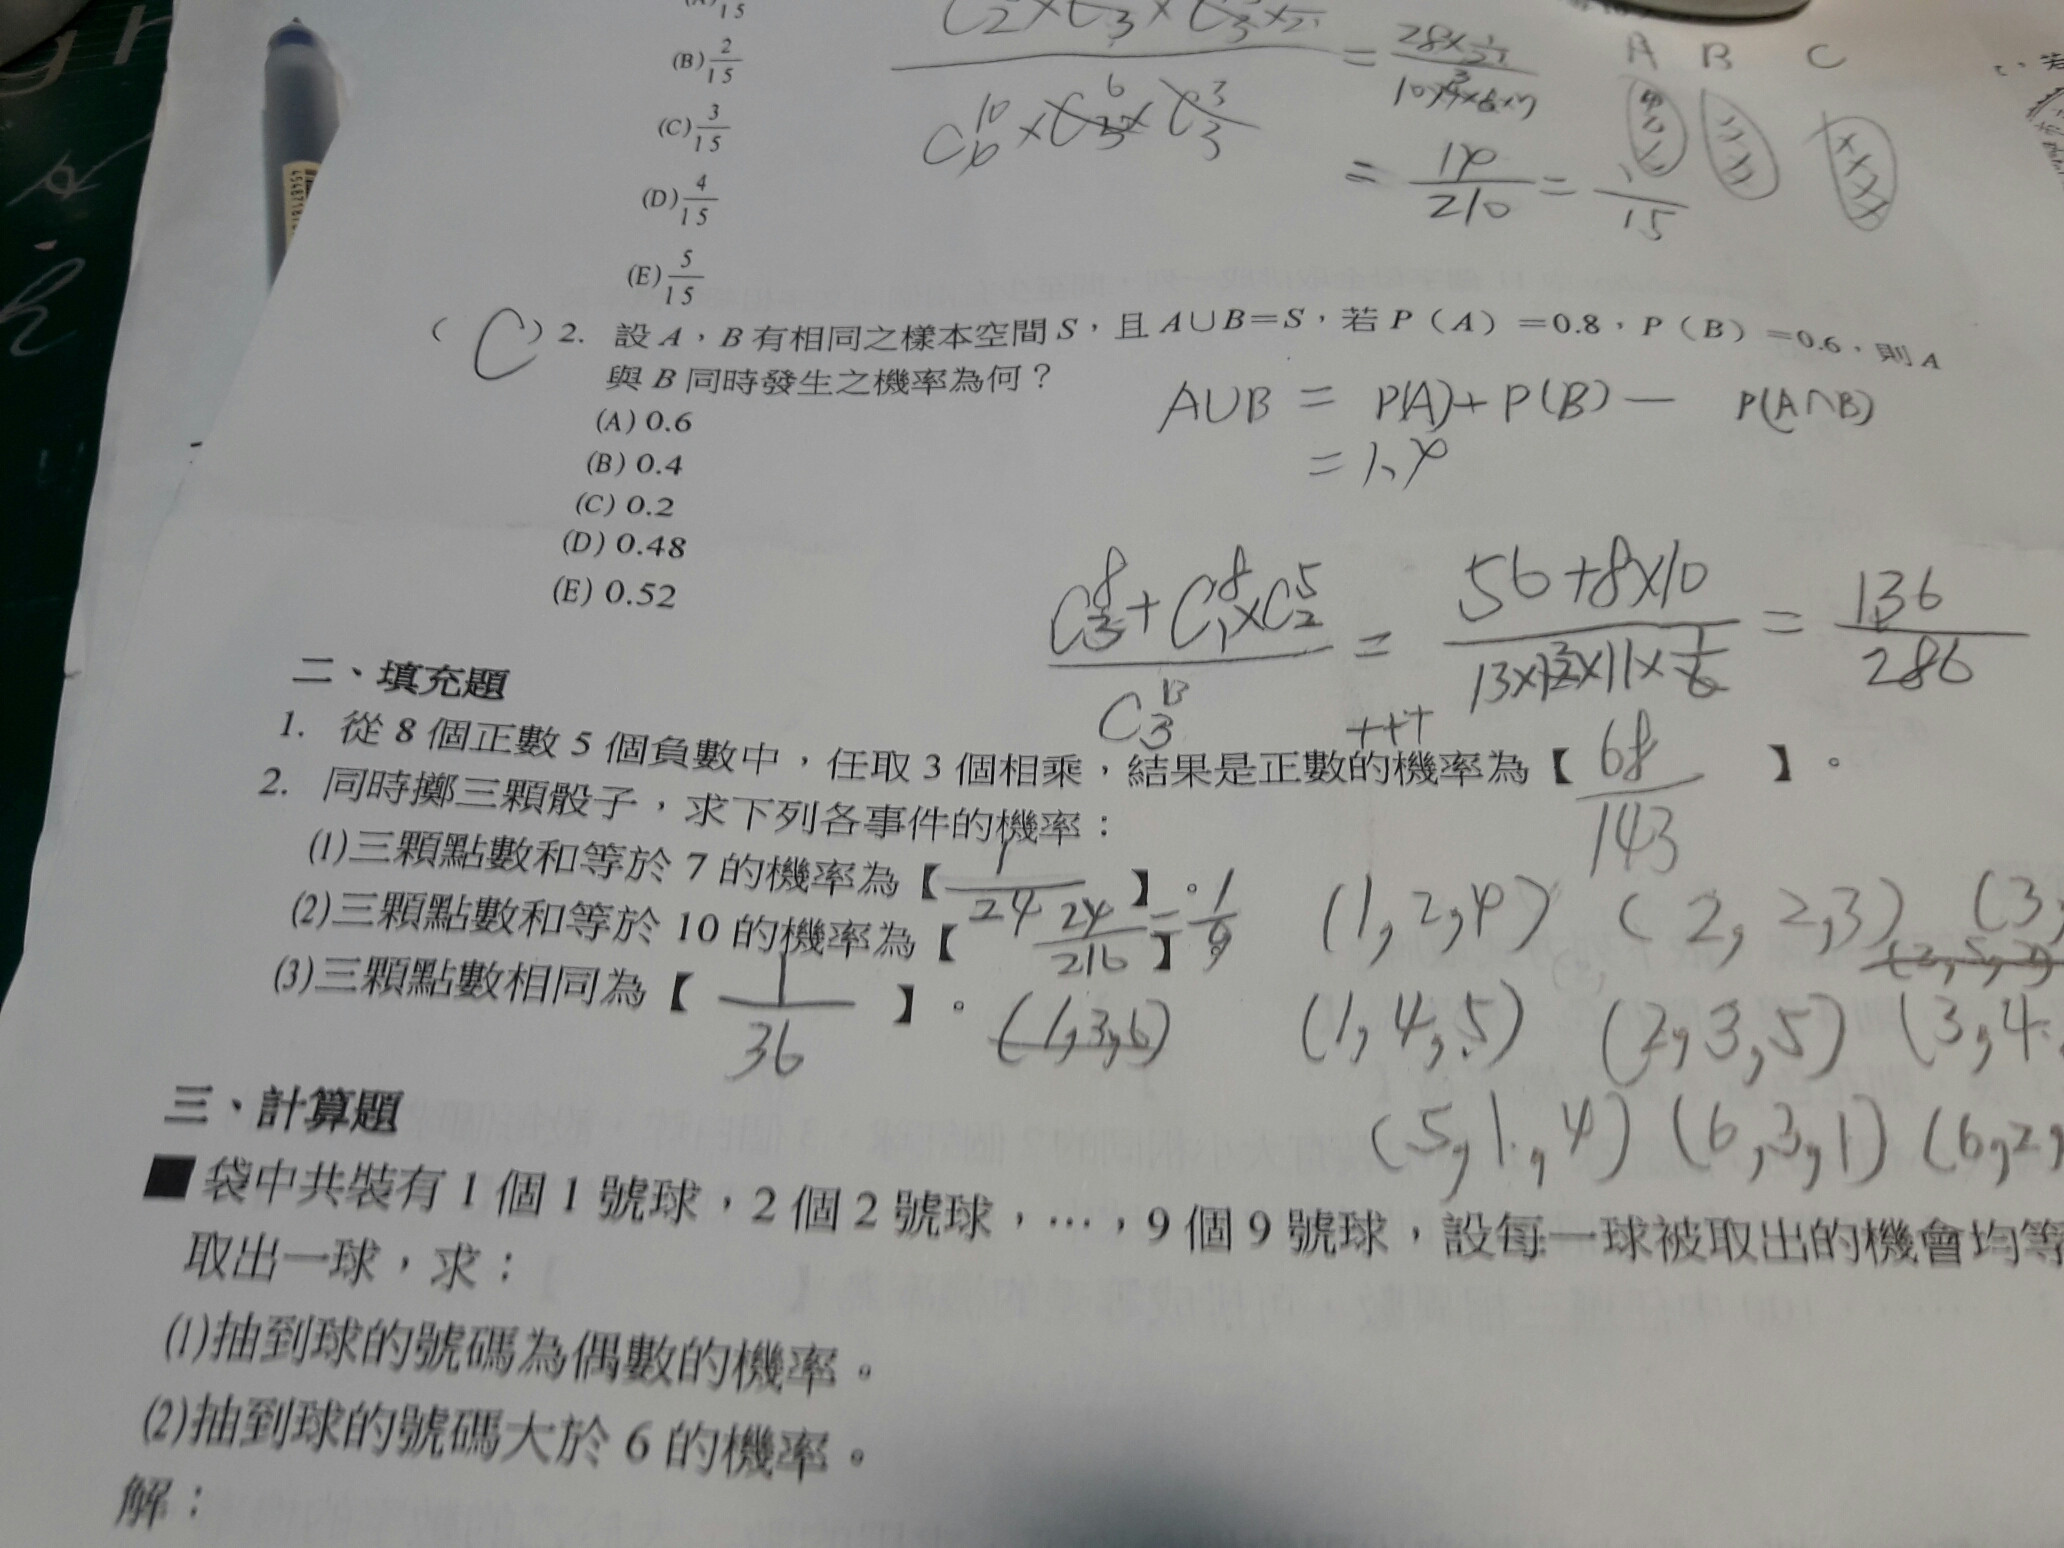 (B) 2/15
(C) 3/15
(D) 4/15
(E) 5/15
A B C
= 14/210 = 1/15
( C ) 2. 設 A，B 有相同之樣本空間 S，且 A∪B=S，若 P（A）=0.8，P（B）=0.6，則 A
與 B 同時發生之機率為何？
(A) 0.6
(B) 0.4
(C) 0.2
(D) 0.48
(E) 0.52
A∪B = P(A)+P(B)− P(A∩B)
= 1.4
二、填充題
1. 從 8 個正數 5 個負數中，任取 3 個相乘，結果是正數的機率為【 68/143 】。
+++
2. 同時擲三顆骰子，求下列各事件的機率：
(1)三顆點數和等於 7 的機率為【 1/24 】。
(2)三顆點數和等於 10 的機率為【 24/216 】= 1/9
(3)三顆點數相同為【 1/36 】。
(1,2,4) (2,2,3) (3,
(1,3,6) (1,4,5) (2,3,5) (3,4
(5,1,4) (6,3,1) (6,2,
三、計算題
■ 袋中共裝有 1 個 1 號球，2 個 2 號球，…，9 個 9 號球，設每一球被取出的機會均等
取出一球，求：
(1)抽到球的號碼為偶數的機率。
(2)抽到球的號碼大於 6 的機率。
解：